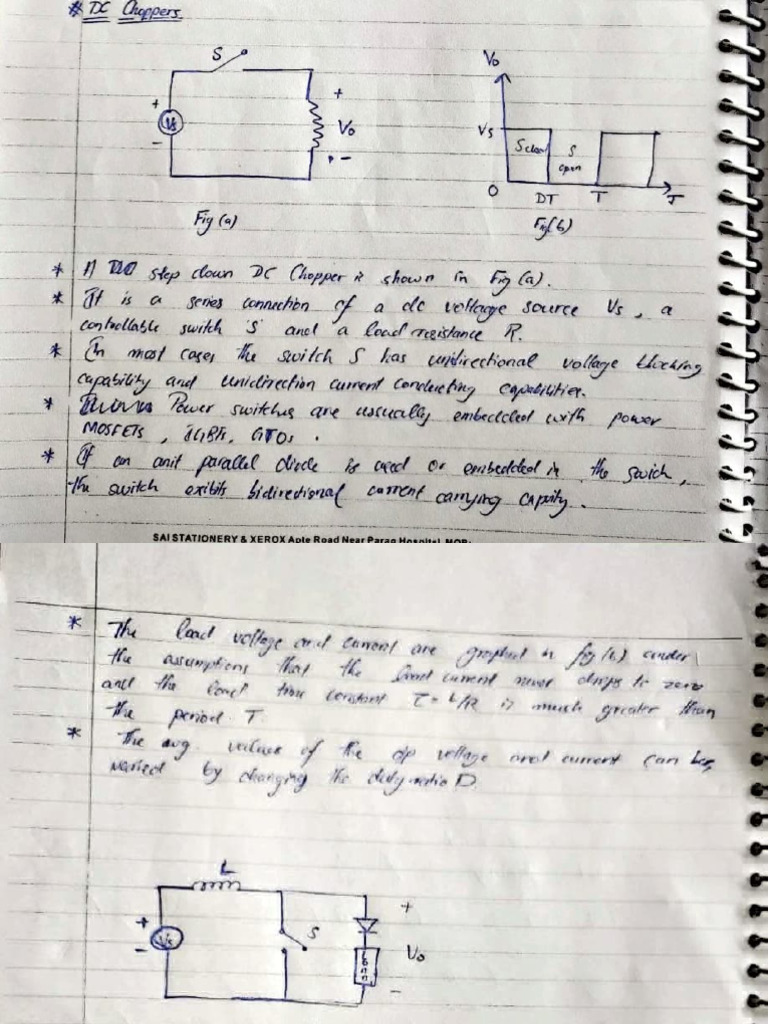 # DC Choppers
S
+
Vs
-
+
Vo
-
Fig (a)
Vo
Vs
S closed
S
open
O
DT
T
T
Fig(b)
* A step down DC Chopper is shown in Fig (a).
* It is a series connection of a dc voltage source Vs, a
controllable switch S and a load resistance R.
* In most cases the switch S has unidirectional voltage blocking
capability and unidirection current conducting capabilities.
* Power switches are usually embedded with power
MOSFETS, IGBTs, GTOs.
* If an anti parallel diode is used or embedded in the swich,
the switch exibits bidirectional current carrying capacity.
SAI STATIONERY & XEROX Apte Road Near Parag Hospital, MOB:
* The load voltage and current are graphed in fig (b) under
the assumptions that the load current never drops to zero
and the load time constant τ = L/R is much greater than
the period T.
* The avg. values of the op voltage and current can be
varied by changing the duty ratio D.
L
+
Vs
-
S
+
Vo
-